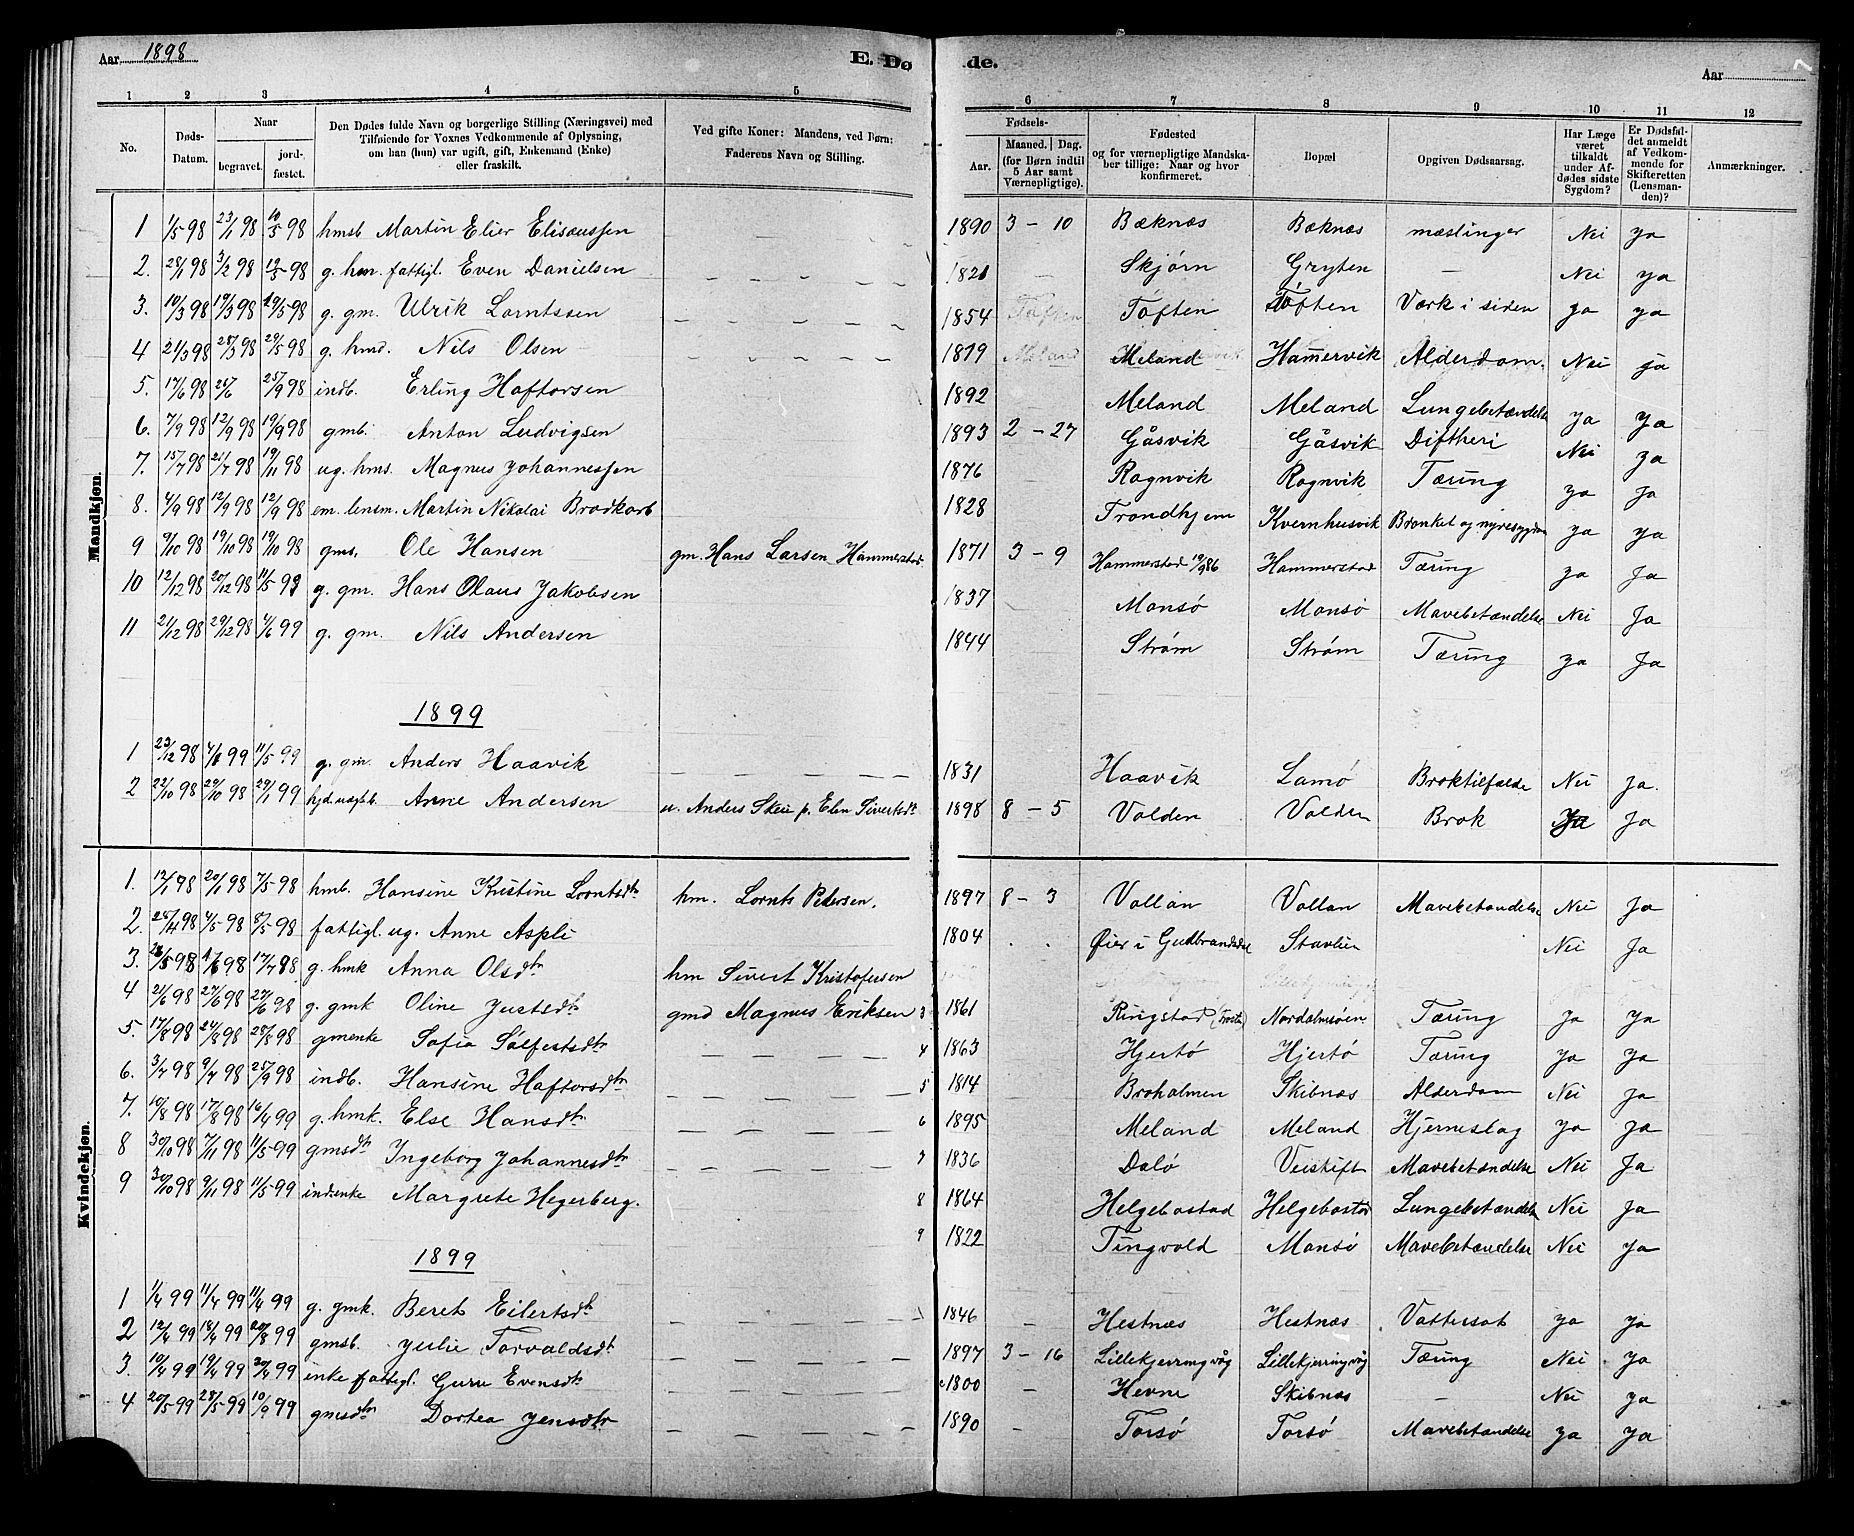 Aar 1898 E. Dø de. Aar
1 2 3 4 5 6 7 8 9 10 11 12
No. Døds-Datum. Naar begravet. jord-fæstet. Den Dødes fulde Navn og borgerlige Stilling (Næringsvei) med Tilføiende for Voxnes Vedkommende af Oplysning, om han (hun) var ugift, gift, Enkemand (Enke) eller fraskilt. Ved gifte Koner: Mandens, ved Børn: Faderens Navn og Stilling. Fødsels- Aar. Maaned. Dag. (for Børn indtil 5 Aar samt Værnepligtige). Fødested og for værnepligtige Mandskaber tillige: Naar og hvor konfirmeret. Bopæl. Opgiven Dødsaarsag. Har Læge været tilkaldt under Afdødes sidste Sygdom? Er Dødsfaldet anmeldt af Vedkommende for Skifteretten (Lensmanden)? Anmærkninger.
Mandkjøn.
1 1/5 98 23/1 98 10/5 98 hmsb Martin Elier Elisæussen 1890 3 - 10 Bæknæs Bæknæs mæslinger Nei Ja
2. 28/1 98 3/2 98 19/5 98 g. hm. fattigl. Even Danielsen 1821 Skjørn Gryten - Nei Ja
3. 10/3 98 19/3 98 29/5 98 g. gm. Ulrik Lorntssen 1854 Tøften Tøften Værk i siden Ja Ja
4 21/3 98 28/3 98 29/5 98 g. hmd. Nils Olsen 1819 Meland Hamervik Alderdom. Nei Ja
5. 17/6 98 25/6 25/9 98 indb. Erling Haftorsen 1892 Meland Meland Lungebetændelse Ja Ja
6. 7/9 98 12/9 98 19/9 98 gmb. Anton Ludvigsen 1893 2 - 27 Gåsvik Gåsvik Diftheri Nei Ja
7. 15/7 98 21/7 98 19/11 98 ug. hms. Magnus Johannessen 1876 Ragnvik Ragnvik Tæring Ja Ja
8. 4/9 98 12/9 98 12/9 98 em. lensm. Martin Nikolai Brodkorb 1828 Trondhjem Kvernhusvik Bronket og nyresygdom Ja Ja
9 9/10 98 19/10 98 19/10 98 gms. Ole Hansen gm. Hans Larsen Hammerstad 1871 3 - 9 Hammerstad 19/9 86 Hammerstad Tæring Ja Ja
10 12/12 98 20/12 98 11/5 99 g. gm. Hans Olaus Jakobsen 1837 Monsø Monsø Mavebetændelse Nei Ja
11 21/12 98 29/12 98 4/6 99 g. gm. Nils Andersen 1844 Strøm Strøm Tæring Ja Ja
1899
1 23/12 98 4/1 99 11/5 99 g. gm. Anders Haavik 1831 Haavik Lamø Broktilfælde Nei Ja.
2 22/10 98 29/10 98 29/1 99 Anne Andersen u. Anders Skei p. Elen Sivertsdt 1898 8 - 5 Valden Valden Brok Ja
Kvindekjøn.
1. 12/1 98 20/1 98 7/5 98 hmb. Hansine Kristine Lorntsdtr hm. Lornts Petersen. 1897 8 - 3 Vallan Vallan Mavebetændelse Nei Ja
2. 25/4 98 4/5 98 8/5 98 fattigl. ug. Anne Aspli 1804 Øier i Gudbrandsdal Stavlien Nei Ja
3. 23/5 98 1/6 98 17/7 98 g. hmk Anna Olsdtr hm Sivert Kristofersen
4 21/6 98 27/6 98 27/6 98 g. gmk. Oline Justsdtr gmd Magnus Eriksen 3 1861 Ringstad (Frosta) Nordalmsøen Tæring Ja Ja
5. 17/8 98 24/8 98 28/8 98 gmenke Sofia Solfestsdtr 4 1863 Hjertø Hjertø Tæring Ja Ja
6. 3/7 98 9/7 98 25/9 98 indb. Hansine Haftorsdtr 5 1814 Broholmen Skibnæs Alderdom Nei Ja
7. 10/8 98 17/8 98 16/4 99 g. hmk. Else Hansdtr 6 1895 Meland Meland Hjerneslag Ja Ja
8 30/10 98 7/11 98 11/5 99 gmsdtr Ingeborg Johannesdtr 7 1836 Dolø Veistift Mavebetændelse Nei Ja
9 30/10 98 9/11 98 11/5 99 indenke Margrete Hegerberg. 8 1864 Helgebostad Helgebostad Lungebetændelse Nei Ja
9 1822 Tingvold Monsø Mavebetændelse Nei Ja
1899
1 1/4 99 11/4 99 11/4 99 g. gmk. Beret Eilertsdtr 1846 Hestnæs Hestnæs Vattersot Ja Ja
2 12/4 99 18/4 99 20/8 99 gmsb. Julie Torvaldsdtr 1897 3 - 16 Lillekjerringvåg Lillekjerringvåg Tæring Nei Ja
3. 10/4 99 19/4 99 20/4 99 inke fattigl. Guru Evensdtr 1800 - Hevne Skibnæs - Nei Ja
4 20/5 99 28/5 99 10/9 99 gmsdtr Dortea Jensdtr 1890 - Torsø Torsø Mavebetændelse Ja Ja